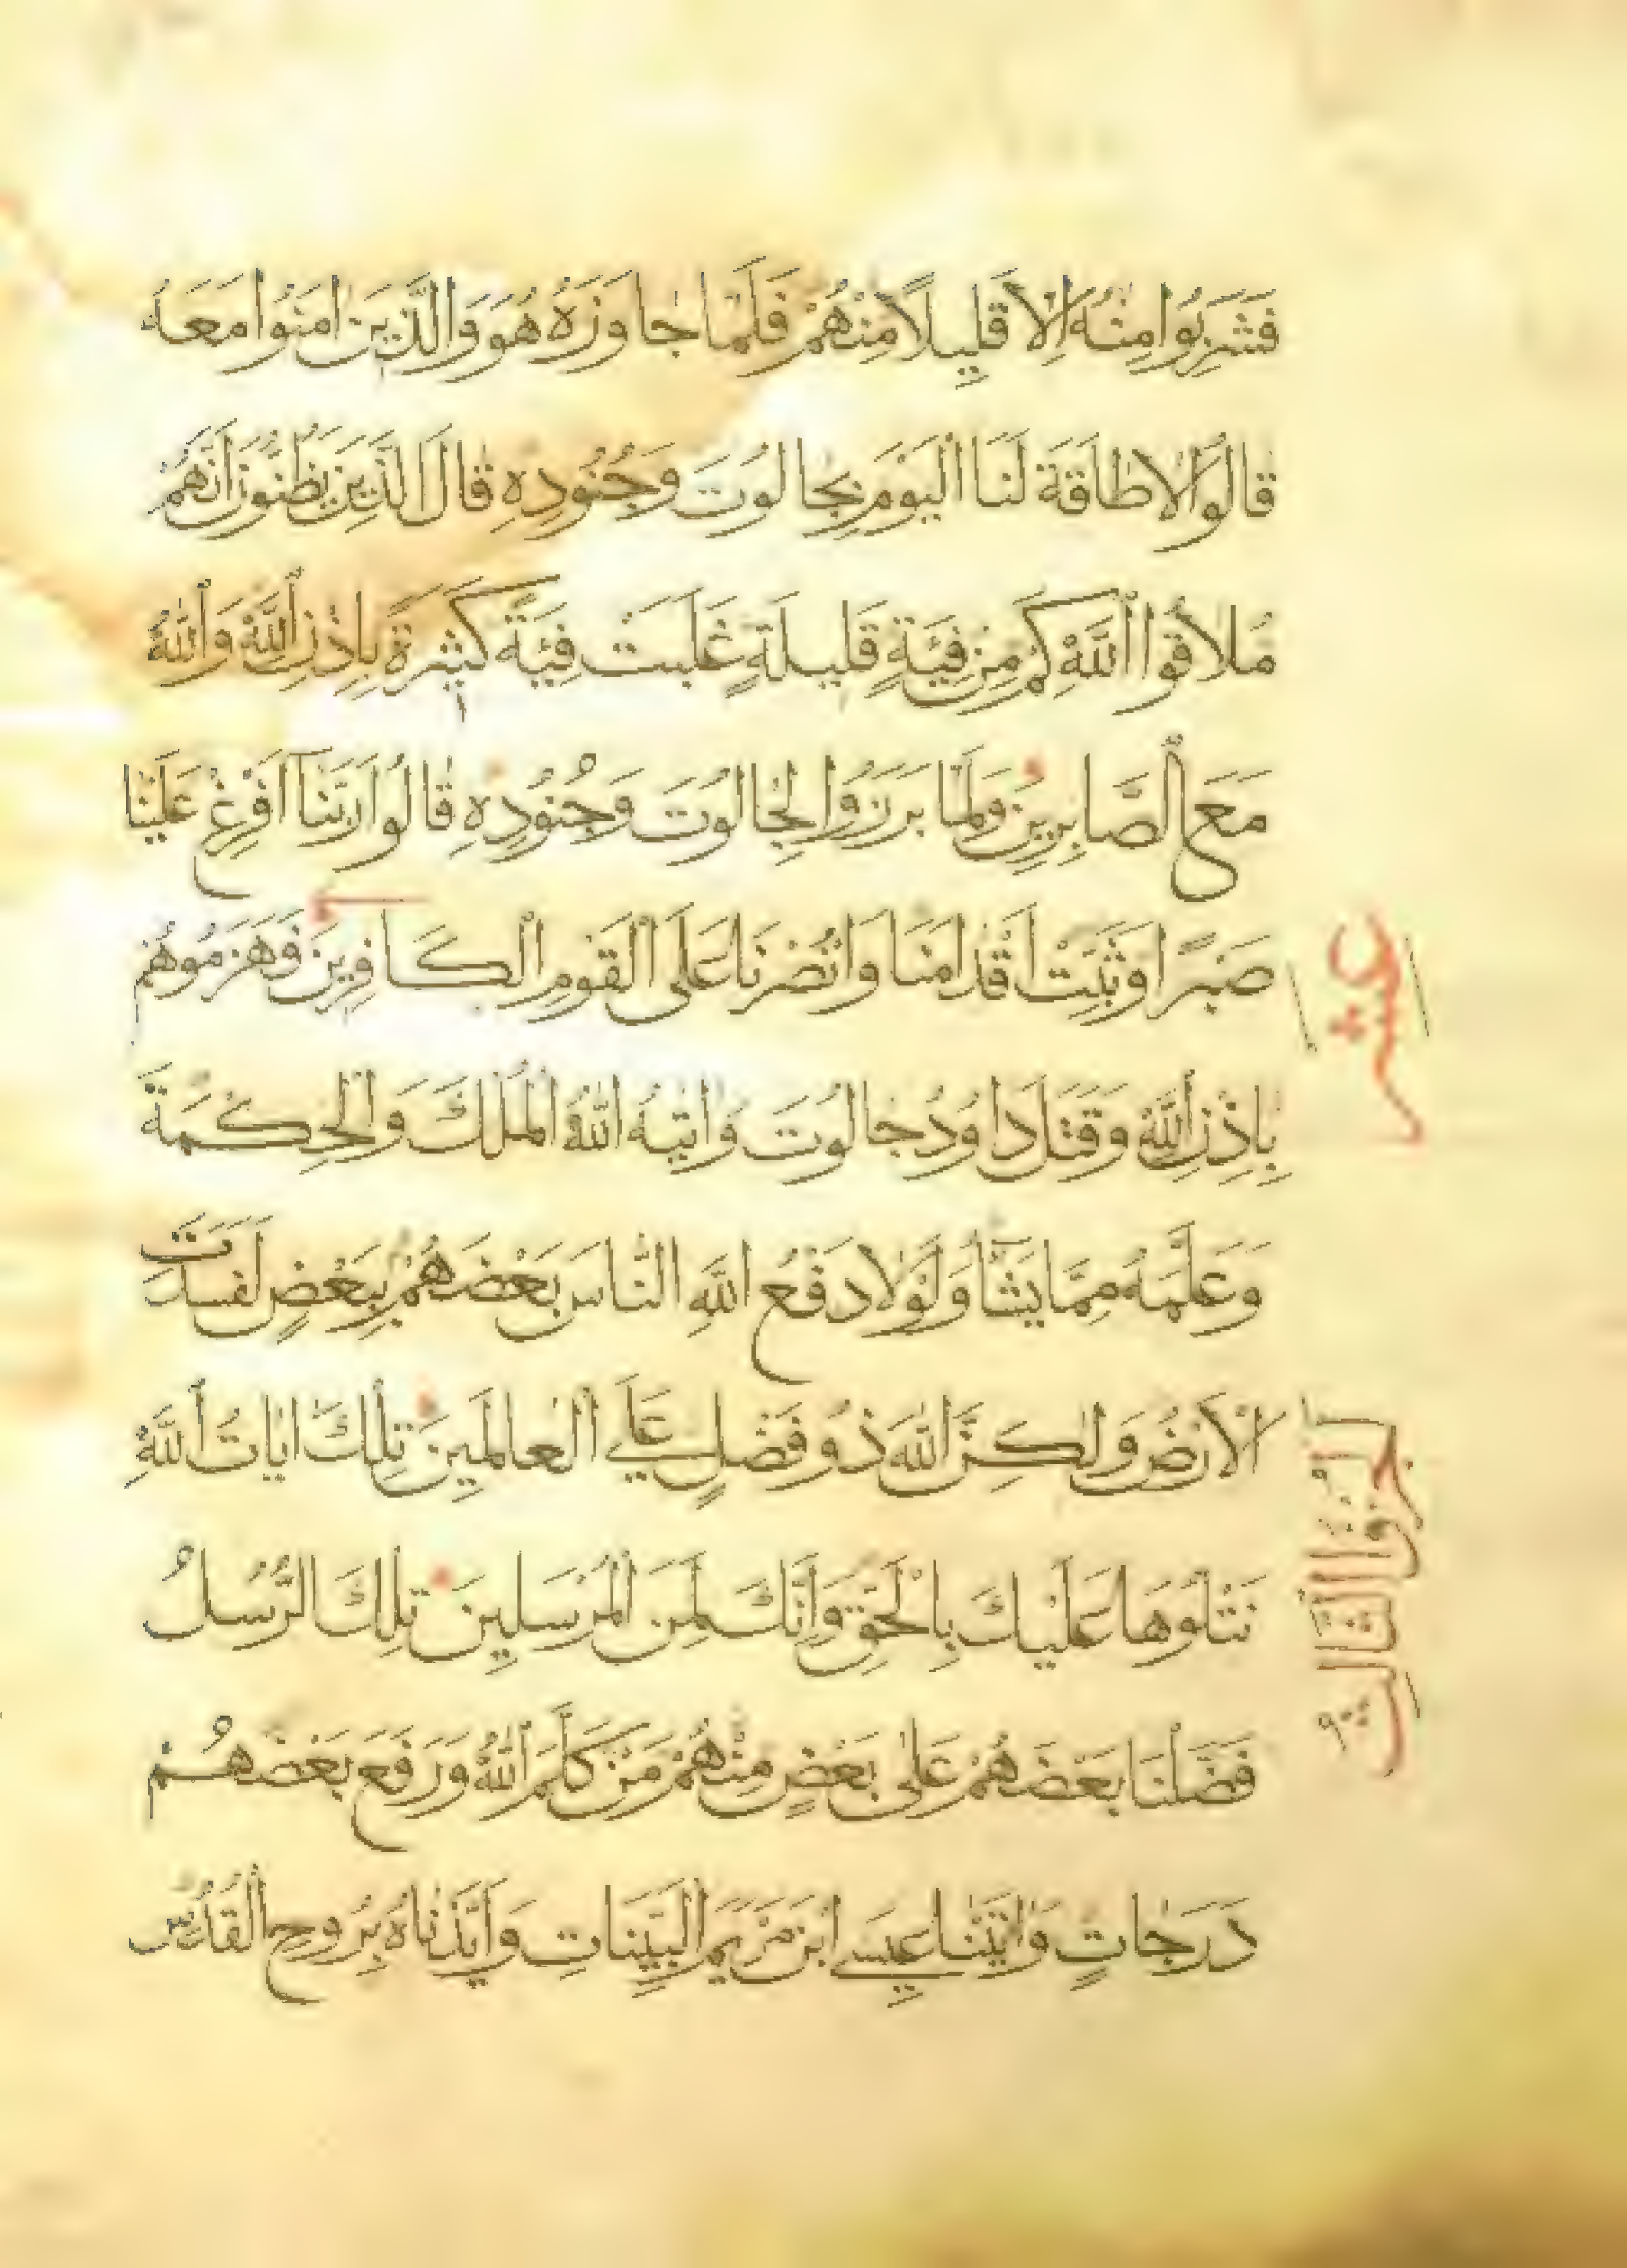 فَشَرِبُوا مِنْهُ اِلَّا قَلِيلًا مِنْهُمْ فَلَمَّا جَاوَزَهُ هُوَ وَالَّذِينَ اٰمَنُوا مَعَهُ
قَالُوا لَا طَاقَةَ لَنَا الْيَوْمَ بِجَالُوتَ وَجُنُودِهِ قَالَ الَّذِينَ يَظُنُّونَ اَنَّهُمْ
مُلَاقُوا اللّٰهِ كَمْ مِنْ فِئَةٍ قَلِيلَةٍ غَلَبَتْ فِئَةً كَثِيرَةً بِاِذْنِ اللّٰهِ وَاللّٰهُ
مَعَ الصَّابِرِينَ وَلَمَّا بَرَزُوا لِجَالُوتَ وَجُنُودِهِ قَالُوا رَبَّنَا اَفْرِغْ عَلَيْنَا
صَبْرًا وَثَبِّتْ اَقْدَامَنَا وَانْصُرْنَا عَلَى الْقَوْمِ الْكَافِرِينَ فَهَزَمُوهُمْ
عشر
بِاِذْنِ اللّٰهِ وَقَتَلَ دَاوُدُ جَالُوتَ وَاٰتٰيهُ اللّٰهُ الْمُلْكَ وَالْحِكْمَةَ
وَعَلَّمَهُ مِمَّا يَشَآءُ وَلَوْلَا دَفْعُ اللّٰهِ النَّاسَ بَعْضَهُمْ بِبَعْضٍ لَفَسَدَتِ
الْاَرْضُ وَلٰكِنَّ اللّٰهَ ذُو فَضْلٍ عَلَى الْعَالَمِينَ تِلْكَ اٰيَاتُ اللّٰهِ
نَتْلُوهَا عَلَيْكَ بِالْحَقِّ وَاِنَّكَ لَمِنَ الْمُرْسَلِينَ تِلْكَ الرُّسُلُ
الجزؤ الثالث
فَضَّلْنَا بَعْضَهُمْ عَلٰى بَعْضٍ مِنْهُمْ مَنْ كَلَّمَ اللّٰهُ وَرَفَعَ بَعْضَهُمْ
دَرَجَاتٍ وَاٰتَيْنَا عِيسَى ابْنَ مَرْيَمَ الْبَيِّنَاتِ وَاَيَّدْنَاهُ بِرُوحِ الْقُدُسِ